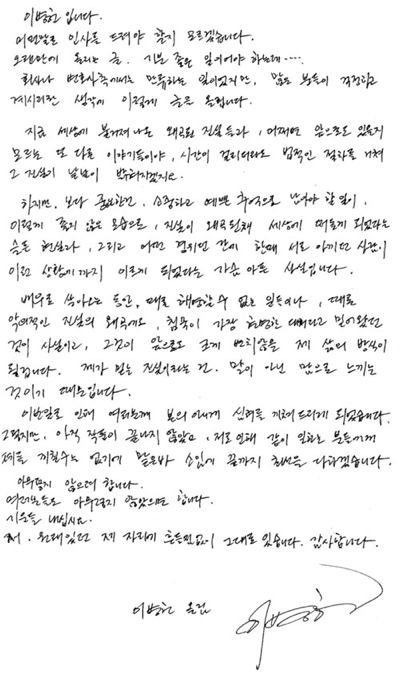 이병헌 입니다.
어떤말로 인사를 드려야 할지 모르겠습니다.
오랜만에 올리는 글. 기분 좋은 일이어야 하는데....
회사나 변호사측에서는 만류하는 일이었지만, 많은 분들이 걱정하고
계시리란 생각에 이렇게 글을 올립니다.
지금 세상에 불거져 나온 왜곡된 진실들과, 어쩌면 앞으로도 있을지
모르는 또 다른 이야기들이야, 시간이 걸리더라도 법적인 절차를 거쳐
그 진실이 낱낱이 밝혀지겠지요.
하지만, 보다 중요한건, 소중하고 예쁜 추억으로 남아야 할 일이,
이렇게 좋지 않은 모습으로, 진실이 왜곡된채 세상에 떠돌게 되었다는
슬픈 현실과, 그리고 어떤 경위인 간에 한때 서로 아끼던 사람이
이런 상황에까지 이르게 되었다는 가슴 아픈 사실입니다.
배우로 살아오는 동안, 때로 해명할 수 없는 일들이나, 때로
악의적인 진실의 왜곡에도, 침묵이 가장 현명한 대처라고 믿어왔던
것이 사실이고, 그것이 앞으로도 크게 변치않을 제 삶의 방식이
될겁니다. 제가 믿는 진실이라는 건. 말이 아닌 맘으로 느끼는
것이기 때문입니다.
이번일로 인해 여러분께 본의 아니게 심려를 끼쳐드리게 되었습니다.
그렇지만, 아직 작품이 끝나지 않았고, 저로 인해 같이 일하는 분들에게
폐를 끼칠수는 없기에 맡은바 소임에 끝까지 최선을 다하겠습니다.
아무렇지 않으려 합니다.
여러분들도 아무렇지 않았으면 합니다.
기운들 내십시요.
저. 원래있던 제 자리가 흔들림없이 그대로 있습니다. 감사합니다.
이병헌 올림